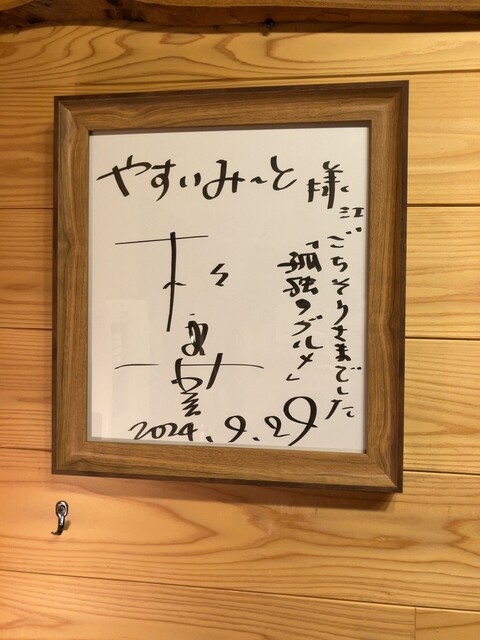 やすいみ〜と様江
ごちそうさまでした
「孤独のグルメ」
2024.9.29